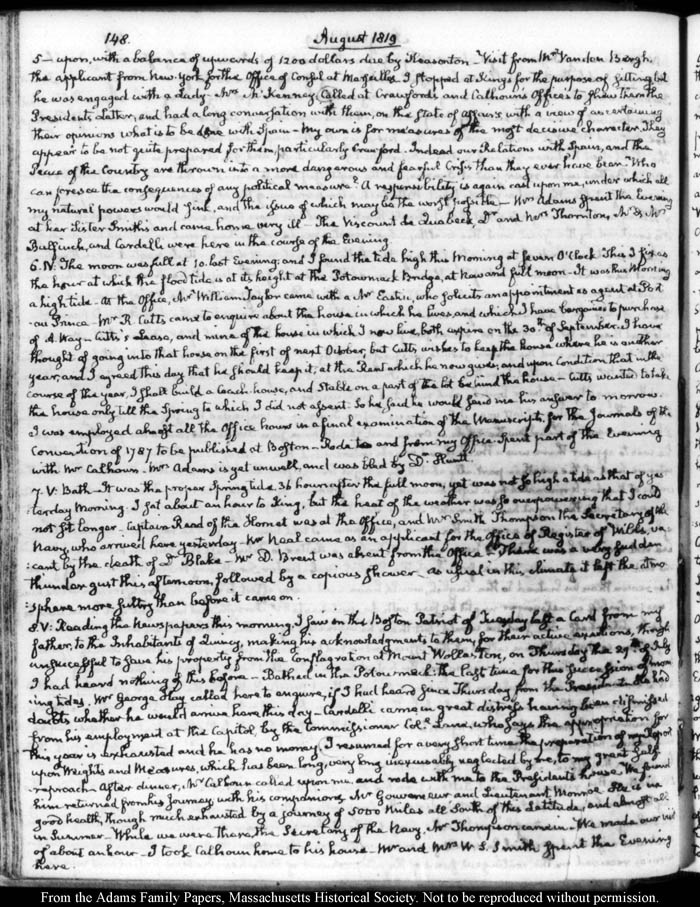 148.
August 1819
5— upon, with a balance of upwards of 1200 dollars due by Keasonton— Visit from Mr Vanden Bergh,
the applicant from New-York for the Office of Consul at Marseilles. I stopped at King's for the purpose of sitting but
he was engaged with a Lady Mrs McKenney, called at Crawford's and Calhoun's Offices to shew them the
President's Letter, and had a long conversation with them, on the state of affairs with a view of ascertaining
their opinions what is to be done with Spain— My own is for measures of the most decisive character. They
appear to be not quite prepared for them, particularly Crawford. Indeed our Relations with Spain, and the
Peace of the Country are thrown into a more dangerous and fearful Crisis than they ever have been. Who
can foresee the consequences of any political measure? A responsibility is again cast upon me, under which all
my natural powers would sink, and the issue of which may be the worst possible— Mrs Adams spent the Evening
at her Sister Smith's and came home very ill— The Viscount de Quabeck, Dr and Mrs Thornton, Mr & Mrs
Bulfinch, and Cardelli were here in the course of the Evening
6. IV. The moon was full at 10. last Evening; and I found the tide high this Morning at seven O'Clock Thus I fix as
the hour at which the flood tide is at its height at the Potowmack Bridge, at new and full moon— It was this Morning
a high tide— At the Office, Mr William Taylor came with a Mr , who solicits an appointment as agent at Port
au Prince— Mr R. Cutts came to enquire about the house in which he lives, and which I have bargained to purchase
of A. Way— Cutts's Lease, and mine of the house in which I now live, both expire on the 30th of September. I have
thought of going into that house on the first of next October, but Cutts wishes to keep the house where he is another
year, and I agreed this day that he should keep it, at the Rent which he now gives, and upon Condition that in the
course of the year, I shall build a Coach-house, and Stable on a part of the lot behind the house— Cutts wanted to take
the house only till the Spring to which I did not assent. So he said he would send me his answer to morrow.
I was employed almost all the Office hours in a final examination of the Manuscripts, for the Journals of the
Convention of 1787 to be published at Boston— Rode to and from my Office. Spent part of the Evening
with Mr Calhoun— Mrs Adams is yet unwell, and was bled by Dr Huntt
7. V. Bath— It was the proper Spring tide, 36 hours after the full moon, yet was not so high a tide as that of yes-
terday Morning. I sat about an hour to King, but the heat of the weather was so overpowering that I could
not sit longer— Captain Read of the Hornet was at the Office, and Mr Smith Thompson the Secretary of the
Navy, who arrived here yesterday— Mr Neal came as an applicant for the Office of Register of Wills, va-
:cant by the death of Dr Blake— Mr D. Brent was absent from the Office— There was a very sudden
thunder gust this afternoon, followed by a copious shower— As usual in this climate it left the Atmo
:sphere more sultry than before it came on—
8. V: Reading the Newspapers this morning, I saw in the Boston Patriot of Tuesday last a Card from my
father, to the Inhabitants of Quincy, making his acknowledgments to them, for their active exertions, though
unsuccessful to save his property from the Conflagration at Mount Wollaston, on Thursday the 29th of July
I had heard nothing of this before— Bathed in the Potowmack the last time for this succession of morn
:ing tides. Mr George Hay called here to enquire, if I had heard since Thursday, from the President. He had
doubts whether he would arrive here this day— Cardelli came in great distress having been dismissed
from his employment at the Capitol, by the Commissioner Col. Lane, who says the appropriation for
this year is exhausted and he has no money. I resumed for a very short time the preparation of my Report
upon Weights and Measures, which has been long, very long inexcusably neglected by me, to my great self
reproach— After dinner, Mr Calhoun called upon me and rode with me to the President's house. We found
him returned from his Journey with his companions, Mr Gouverneur and Lieutenant Monroe. He is in
good health, though much exhausted by a journey of 5000 Miles all South of this Latitude, and almost all
in Summer— While we were there, the Secretary of the Navy, Mr Thompson came in— We made our visit
of about an hour— I took Calhoun home to his house— Mr and Mrs W. S. Smith spent the Evening
here.
From the Adams Family Papers, Massachusetts Historical Society. Not to be reproduced without permission.